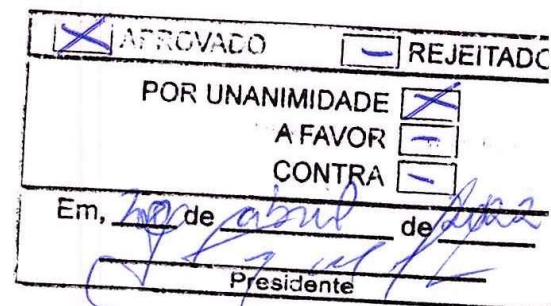 APROVADO REJEITADO
POR UNANIMIDADE
A FAVOR
CONTRA
Em, de abril de 2022
Presidente